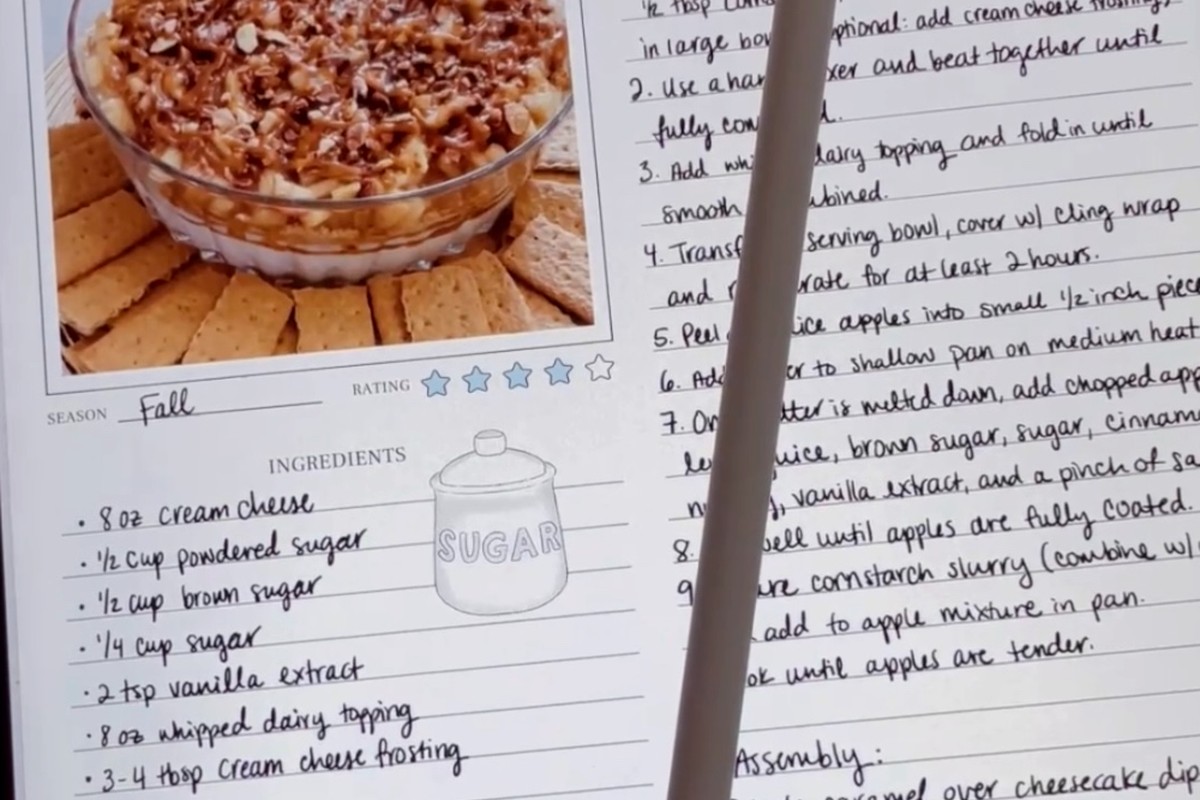 SEASON Fall
RATING
INGREDIENTS
SUGAR
• 8 oz cream cheese
• 1/2 cup powdered sugar
• 1/2 cup brown sugar
• 1/4 cup sugar
• 2 tsp vanilla extract
• 8 oz whipped dairy topping
• 3-4 tbsp cream cheese frosting
1/2 tbsp
in large optional: add cream cheese frosting,
2. Use a and beat together until
fully
3. Add dairy topping and fold in until
smooth
4. serving bowl, cover w/ cling wrap
and for at least 2 hours.
5. Peel apples into small 1/2 inch
6. to shallow pan on medium heat
7. is meltd down, add chopped
brown sugar, sugar,
vanilla extract, and a pinch of
8. until apples are fully coated.
9 cornstarch slurry (combine w/
add to apple mixture in pan.
until apples are tender.
Assembly:
caramel over cheesecake dip